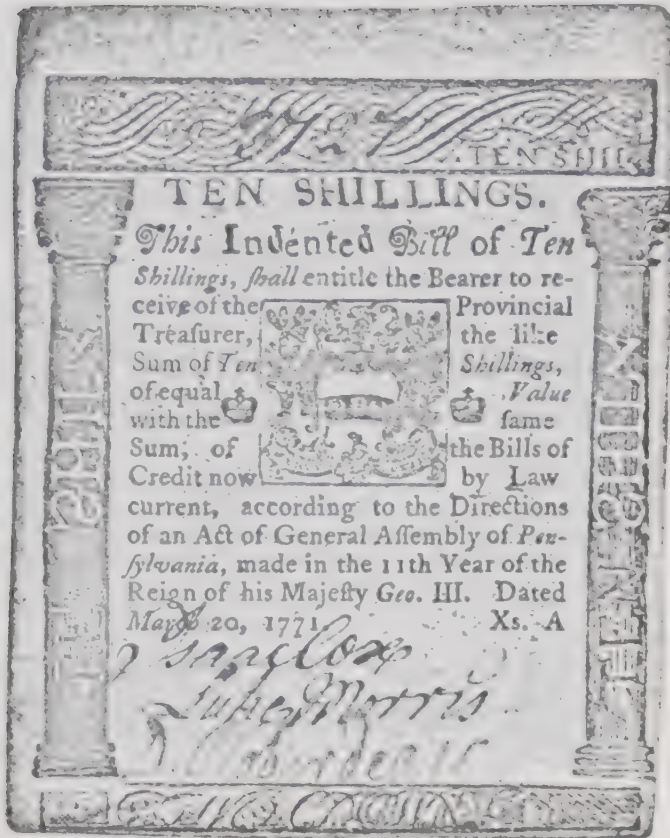 TEN SHILL
TEN SHILLINGS.
This Indented Bill of Ten
Shillings, ſhall entitle the Bearer to re-
ceive of the Provincial
Treaſurer, the like
Sum of Ten Shillings,
of equal Value
with the ſame
Sum, of the Bills of
Credit now by Law
current, according to the Directions
of an Act of General Aſſembly of Pen-
ſylvania, made in the 11th Year of the
Reign of his Majeſty Geo. III. Dated
March 20, 1771 Xs. A
Isaac Cox
Luke Morris